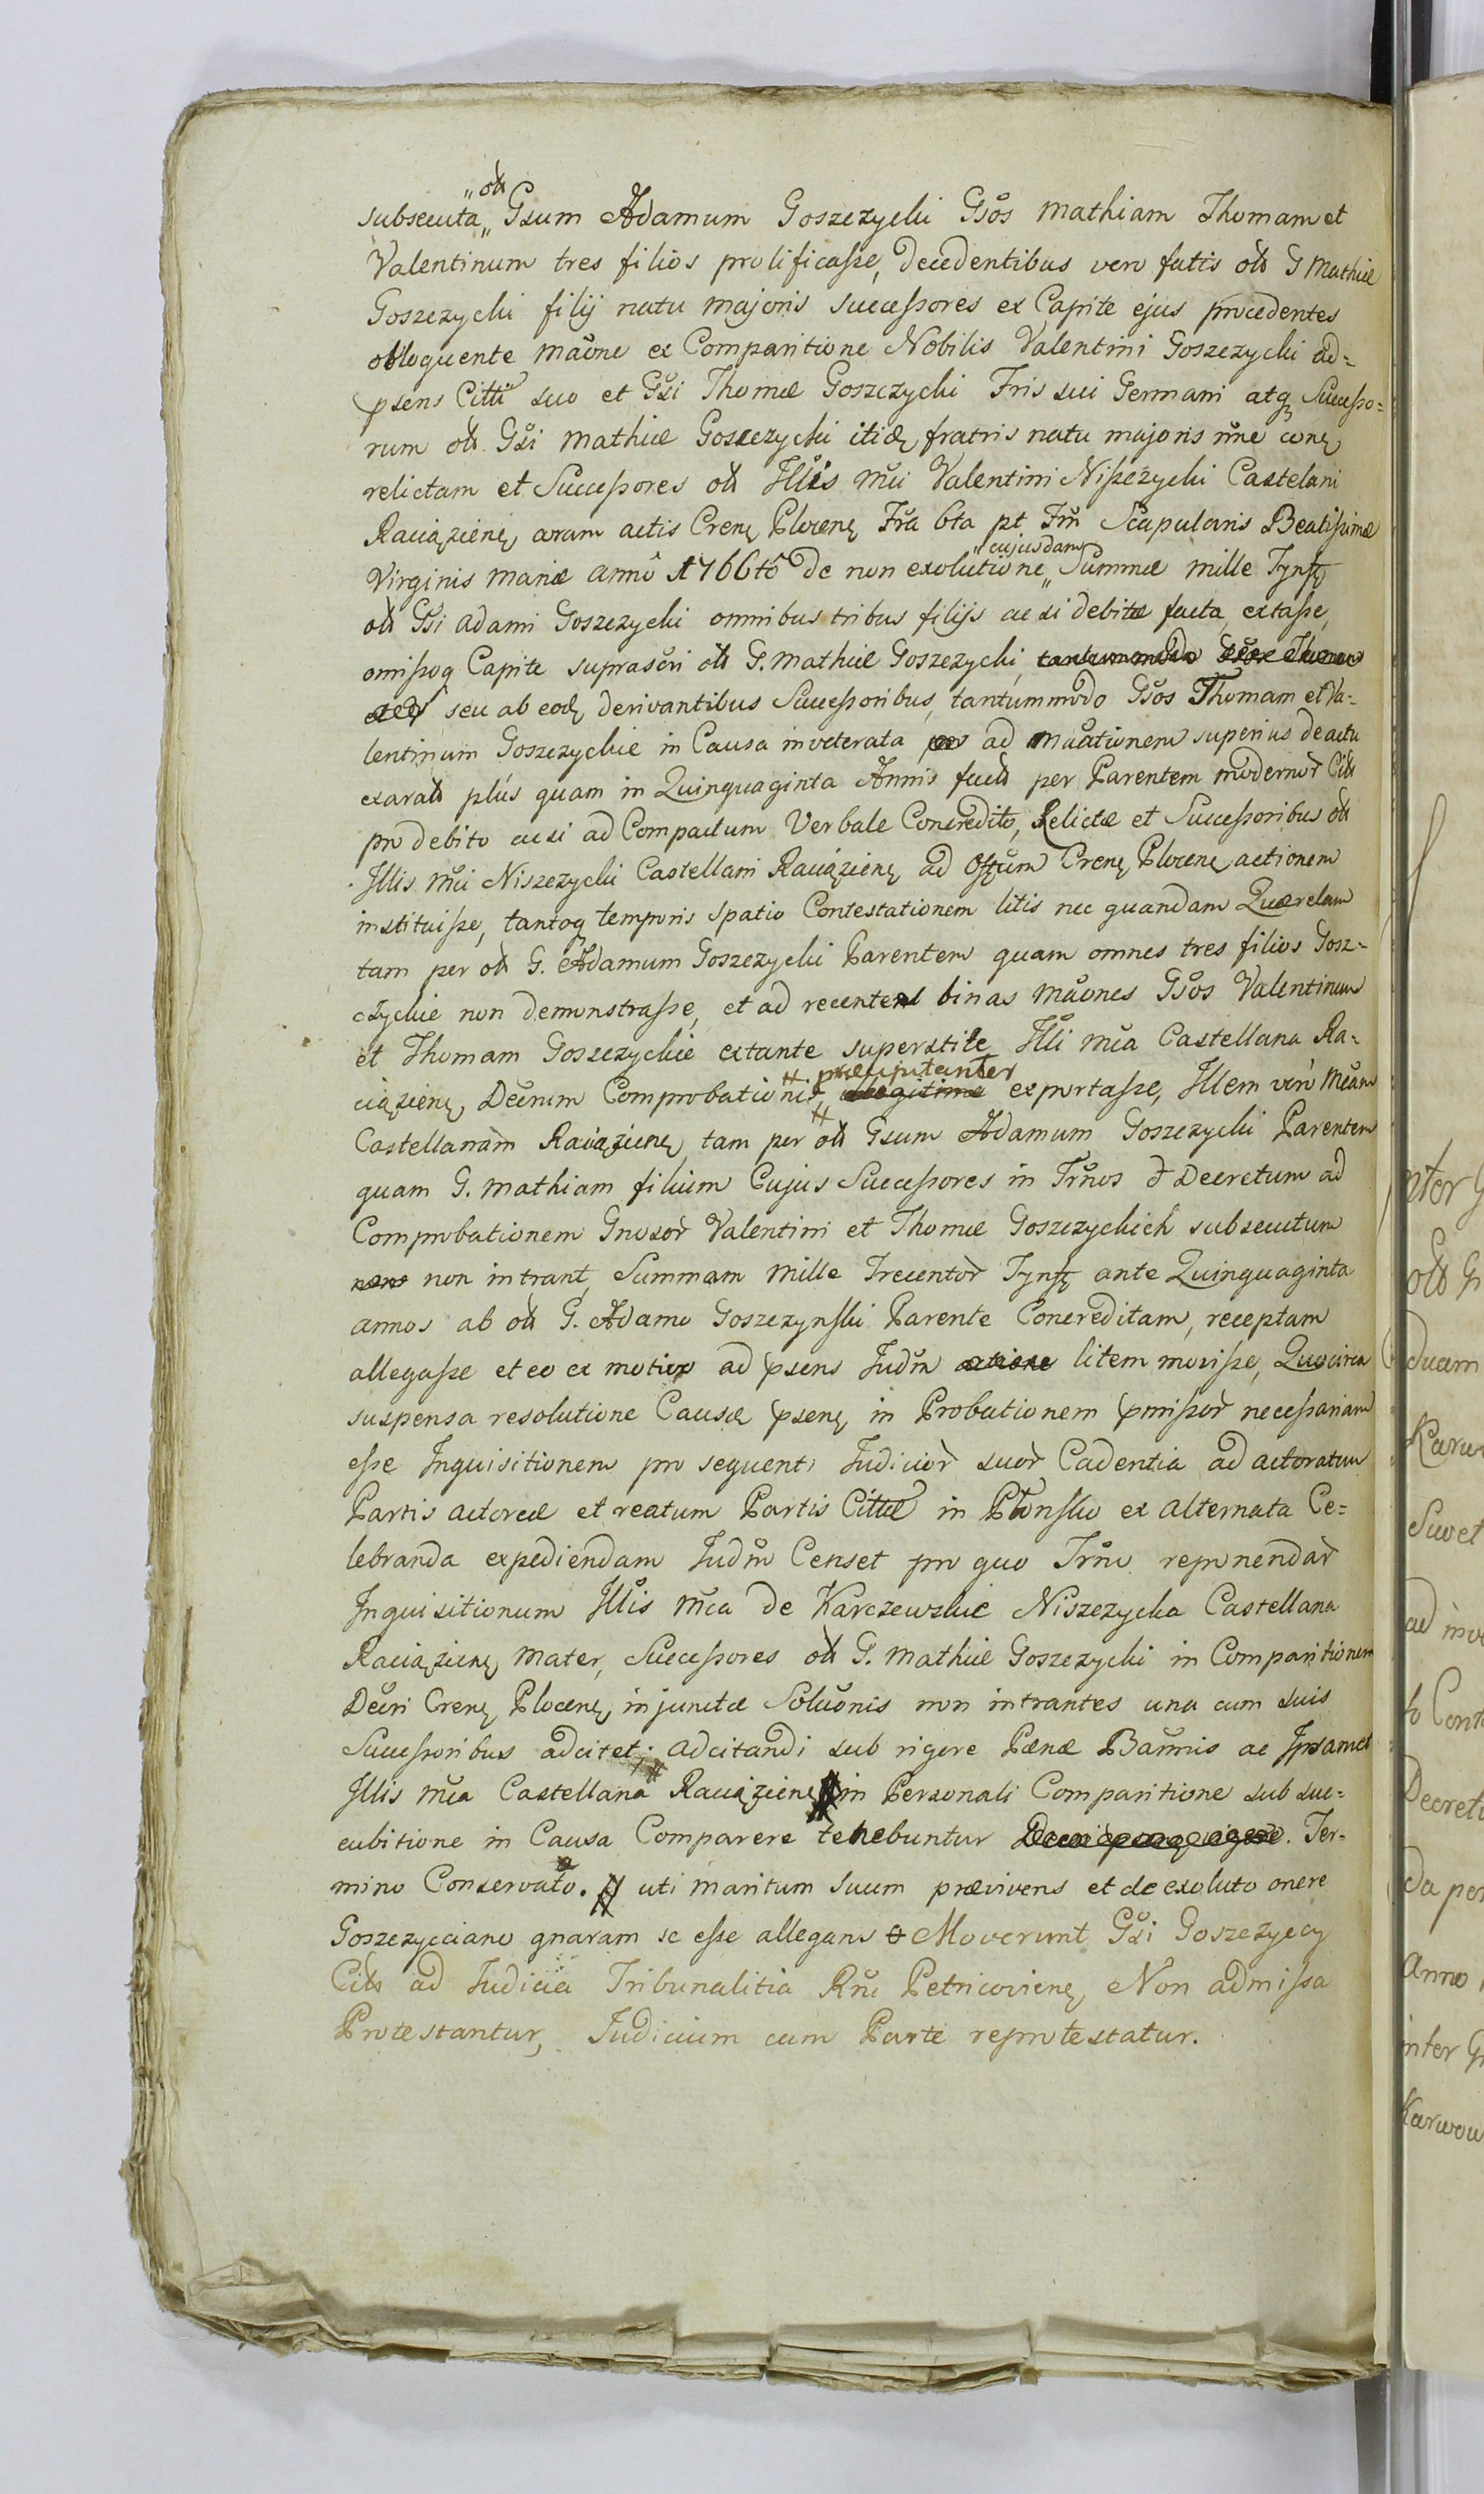 subsecuta „olı̄„ Gsum Adamum Goszczycki Gsos Mathiam Thomam et
Valentinum tres filios prolificasse, decedentibus vero fatis olı̄ G Mathiæ
Goszczycki filij natu majoris successores ex Capite ejus procedentes
obloquente mãone ex Comparitione Nobilis Valentini Goszczycki ad=
psens Citti suo et Gsi Thomæ Goszczycki Fris sui Germani atq Successo=
rum olı̄ Gsi Mathiæ Goszczycki itid fratris natu majoris nne
relictam et Successores olı̄ Illis Mci Valentini Niszczycki Castelani
Raciązienę coram actis Crenę Plocenę Fra 6ta pt Fm Scapularis Beatissimæ
Virginis Mariæ Anno 1766to de non exolutione „cujusdam„ Summæ mille Tynf
olı̄ Gsi Adami Goszczycki omnibus tribus filijs ac si debitæ facta extasse,
omissoq Capite suprascri olı̄ G. Mathiæ Goszczycki, tantummodo
seu ab eod derivantibus Successoribus, tantummodo Gsos Thomam et Va=
lentinum Goszczyckie in Causa inveterata ad mãationem superius de actu
exaratı̄ plus quam in Quinquaginta Annis factı̄ per Parentem modernor Citt
pro debito ac si ad Compactum Verbale Concredito, Relictæ et Successoribus olı̄
Illis Mci Niszczycki Castellani Raciązienę ad Offcum Crenę Plocenę actionem
instituisse, tantoq temporis spatio Contestationem litis nec quandam Quærelam
tam per olı̄ G. Adamum Goszczycki Parentem quam omnes tres filios Gosz=
czyckie non demonstrasse, et ad recentem binas mãones Gsos Valentinum
et Thomam Goszczyckie extante superstite Illi Mca Castellana Ra=
ciązienę Decrum Comprobationis, # præcipitanter # illegitime exportasse, Illem vero Mcam
Castellanam Raciązienę tam per olı̄ Gsum Adamum Goszczycki Parentem
quam G. Mathiam filium Cujus Successores in Trnos Decretum ad
Comprobationem Gnosor Valentini et Thomæ Goszczyckich subsecutum
non intrant, Summam mille Trecentor Tynf ante Quinquaginta
annos ab olı̄ G. Adamo Goszczynski Parente Concreditam, receptam
allegasse et eo ex motivo ad psens Judm litem movisse, Quocirca
suspensa resolutione Causæ psenę in Probationem pmissor necessariam
esse Inquisitionem pro sequenti Judicior suor Cadentia ad actoratum
Partis actoreæ et reatum Partis Cittæ in Płonsko ex alternata Ce=
lebranda expediendam Judm Censet pro quo Trno reponendar
Inquisitionum Illis Mca de Karczewskie Niszczycka Castellana
Raciązienę Mater, Successores olı̄ G. Mathiæ Goszczycki in Comparitionem
Decri Crenę Plocenę injunctæ Solucionis non intrantes una cum suis
Successoribus adcitet; adcitandi sub rigore Pænæ Bannis ac Ipsamet
Illis Mca Castellana Raciązienę # in Personali Comparitione sub suc=
cubitione in Causa Comparere tenebuntur. Ter=
mino Conservato. # uti maritum suum prævivens et de exoluto onere
Goszczycciano gnaram se esse allegans Moverunt Gsi Goszczyccy
Citt ad Judicia Tribunalitia Rni Petricovienę Non admissa
Protestantur, Judicium cum Parte reprotestatur.